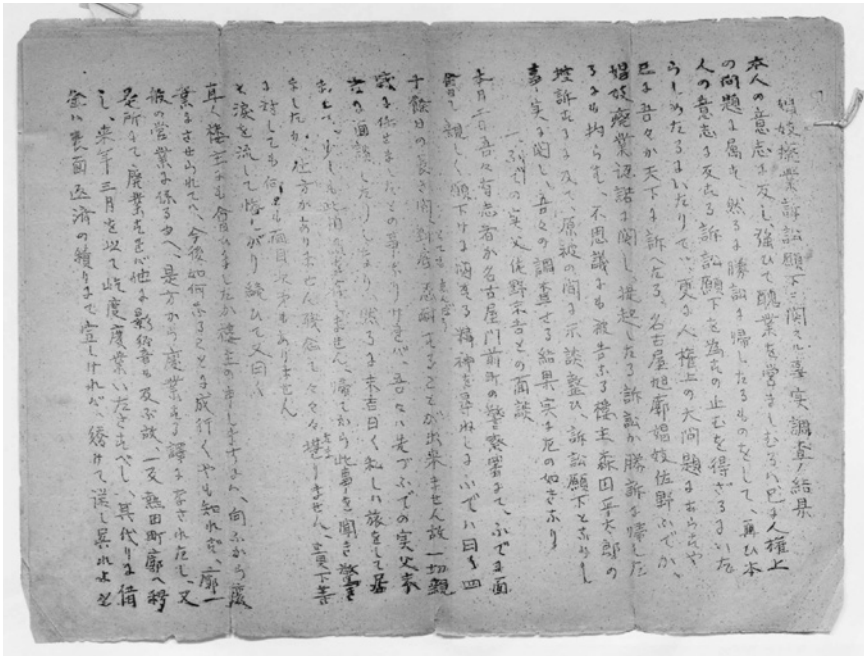 娼妓廃業訴訟願下ニ関スル事実調査ノ結果
本人の意志に反し、強ひて醜業を営ましむるハ已に人権上
の問題に属す、然るに勝訴に帰したるものをして、再ひ本
人の意志に反する訴訟願下を為すの止むを得ざるにいた
らしめたるにいたりてハ、更に人権上の大問題にあらすや
已に吾々か天下に訴へたる、名古屋旭廓娼妓佐野ふでか、
娼妓廃業認諾に関し、提起したる訴訟か勝訴に帰した
るにも拘らす、不思議にも被告なる楼主森田平太郎の
控訴するに及て、原被の間に示談整ひ、訴訟願下となりし
事実に関し、吾々の調査せる結果実に左の如きなり
一、ふでの実父佐野宗吉との面談
本月二日吾々有志者か名古屋門前町の警察署にて、ふでに面
会て親しく願下けに関する精神を尋ねしにふでハ曰く四
十余分の長き間到底忍耐することが出来ません故一切親
に任せましたとの事なりけれバ、吾々ハ先づふでの実父
吉に面談したりしなり、然るに末吉曰く私しハ旅をして居
まして、少しも此泊の事を存しません、帰てから此事を聞き驚き
ましたか、仕方がありません残念で々々堪りません、貴下等
に対しても何とも面目次第もありません
と涙を流して悔しがり続ひて又曰く
楼主にも会ひましたか楼主の申しますにハ、向ふから廃
業させられてハ、今後如何なることに成行くやも知れず、廓一
般の営業に係るゆへ、是方から廃業する訳に参されだし、又
是所にて廃業をせバ他に影響を及ぶ故、一反熱田町廓へ移
し、来年三月を以て屹度廃業いたさすべし、其代りに借
金ハ表面返済の積りまで宜しけれバ、移して